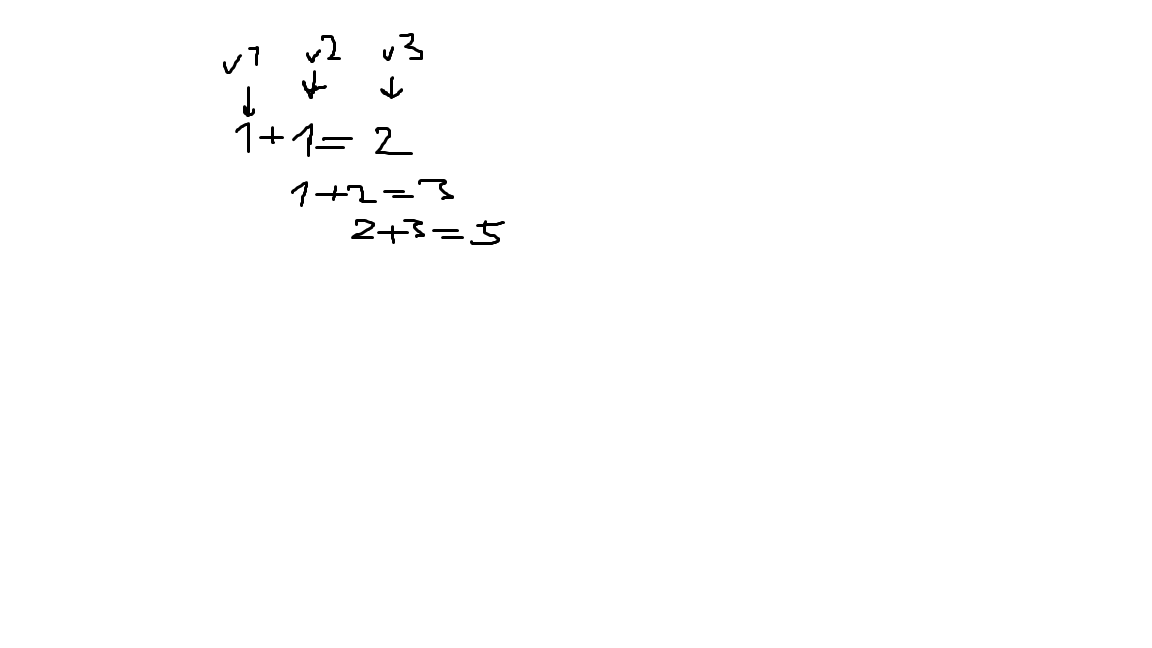 v1 v2 v3
↓ ↓ ↓
1+1=2
1+2=3
2+3=5